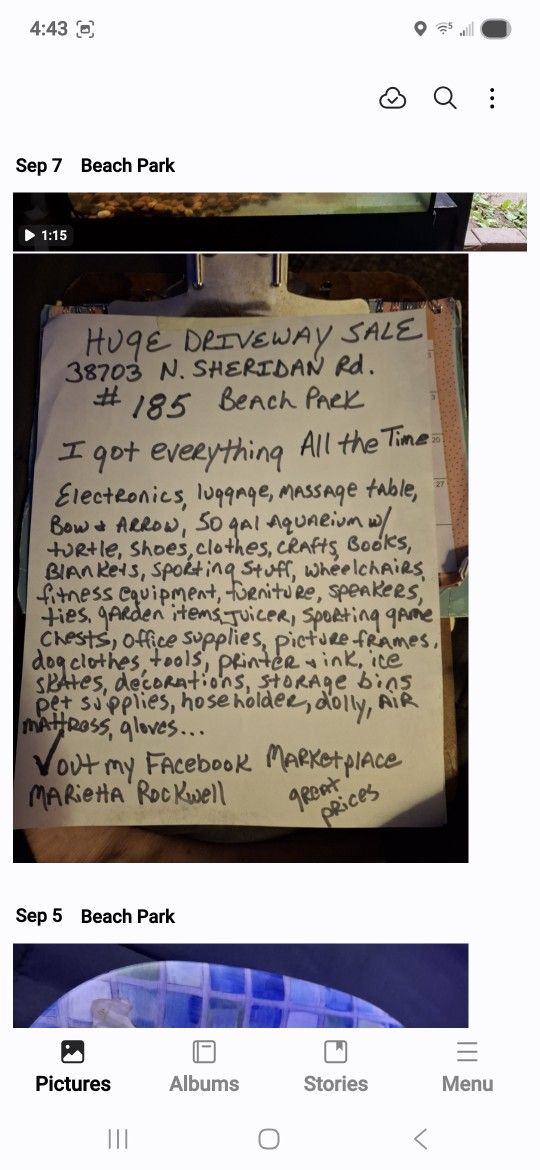 4:43
Sep 7 Beach Park
1:15
HUGE DRIVEWAY SALE
38703 N. SHERIDAN Rd.
# 185 Beach Park
I got everything All the Time
Electronics, luggage, MASSAge table,
Bow & ARROW, 50 gal Aquarium w/
turtle, shoes, clothes, CRAfts, Books,
Blankets, sporting stuff, wheelchairs,
fitness equipment, furniture, speakers,
ties, gARden items, Juicer, sporting game
chests, office supplies, picture frames,
dog clothes, tools, printer & ink, ice
skates, decorations, storage bins
pet supplies, hose holder, dolly, AIR
mattross, gloves...
✓ out my Facebook Marketplace
MARiettA Rockwell great
prices
3
3
20
27
Sep 5 Beach Park
Pictures Albums Stories Menu